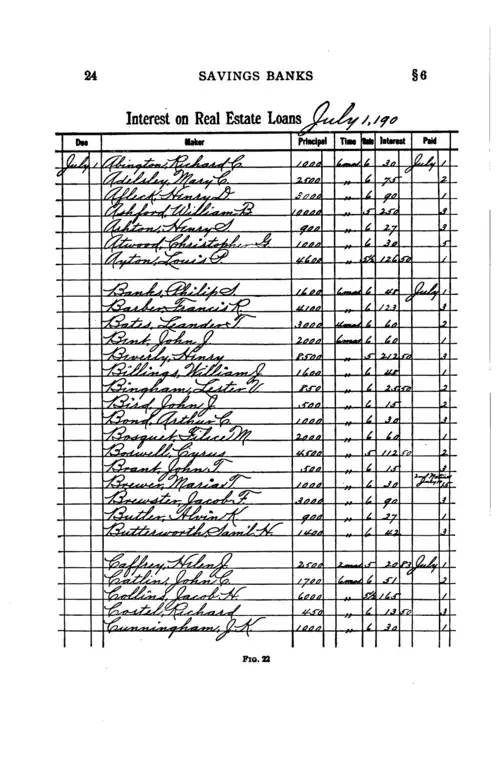 24 SAVINGS BANKS §6
Interest on Real Estate Loans July 1, 190
Due Maker Principal Time Rate Interest Paid
July 1 Abington, Richard C. 1000 6 mos 6 30 July 1
Adelsley, Mary C. 2500 " 6 75 2
Afleck, Henry D. 3000 " 6 90 1
Ashford, William B. 10000 " 5 250 3
Ashton, Henry S. 900 " 6 27 3
Atwood, Christopher G. 1000 " 6 30 5
Ayton, Louis P. 4600 " 5½ 126 50 1
Banks, Philip S. 1600 6 mos 6 48 July 1
Barber, Francis R. 4100 " 6 123 3
Bates, Leander T. 3000 4 mos 6 60 2
Bent, John J. 2000 6 mos 6 60 1
Beverly, Henry 8500 " 5 212 50 3
Billings, William J. 1600 " 6 48 1
Bingham, Lester V. 850 " 6 25 50 2
Bird, John J. 500 " 6 15 2
Bond, Arthur C. 1000 " 6 30 3
Bosquet, Felice M. 2000 " 6 60 1
Boswell, Cyrus 4500 " 5 112 50 2
Brant, John T. 500 " 6 15 3
Brewer, Maria T. 1000 " 6 30
Brewster, Jacob F. 3000 " 6 90 3
Butler, Alvin K. 900 " 6 27 1
Butterworth, Saml. H. 1400 " 6 42 3
Caffrey, Helen J. 2500 2 mos 5 20 83 July 1
Catlin, John C. 1700 6 mos 6 51 2
Collins, Jacob H. 6000 " 5½ 165 1
Costel, Richard 450 " 6 13 50 3
Cunningham, J. K. 1000 " 6 30 1
FIG. 22